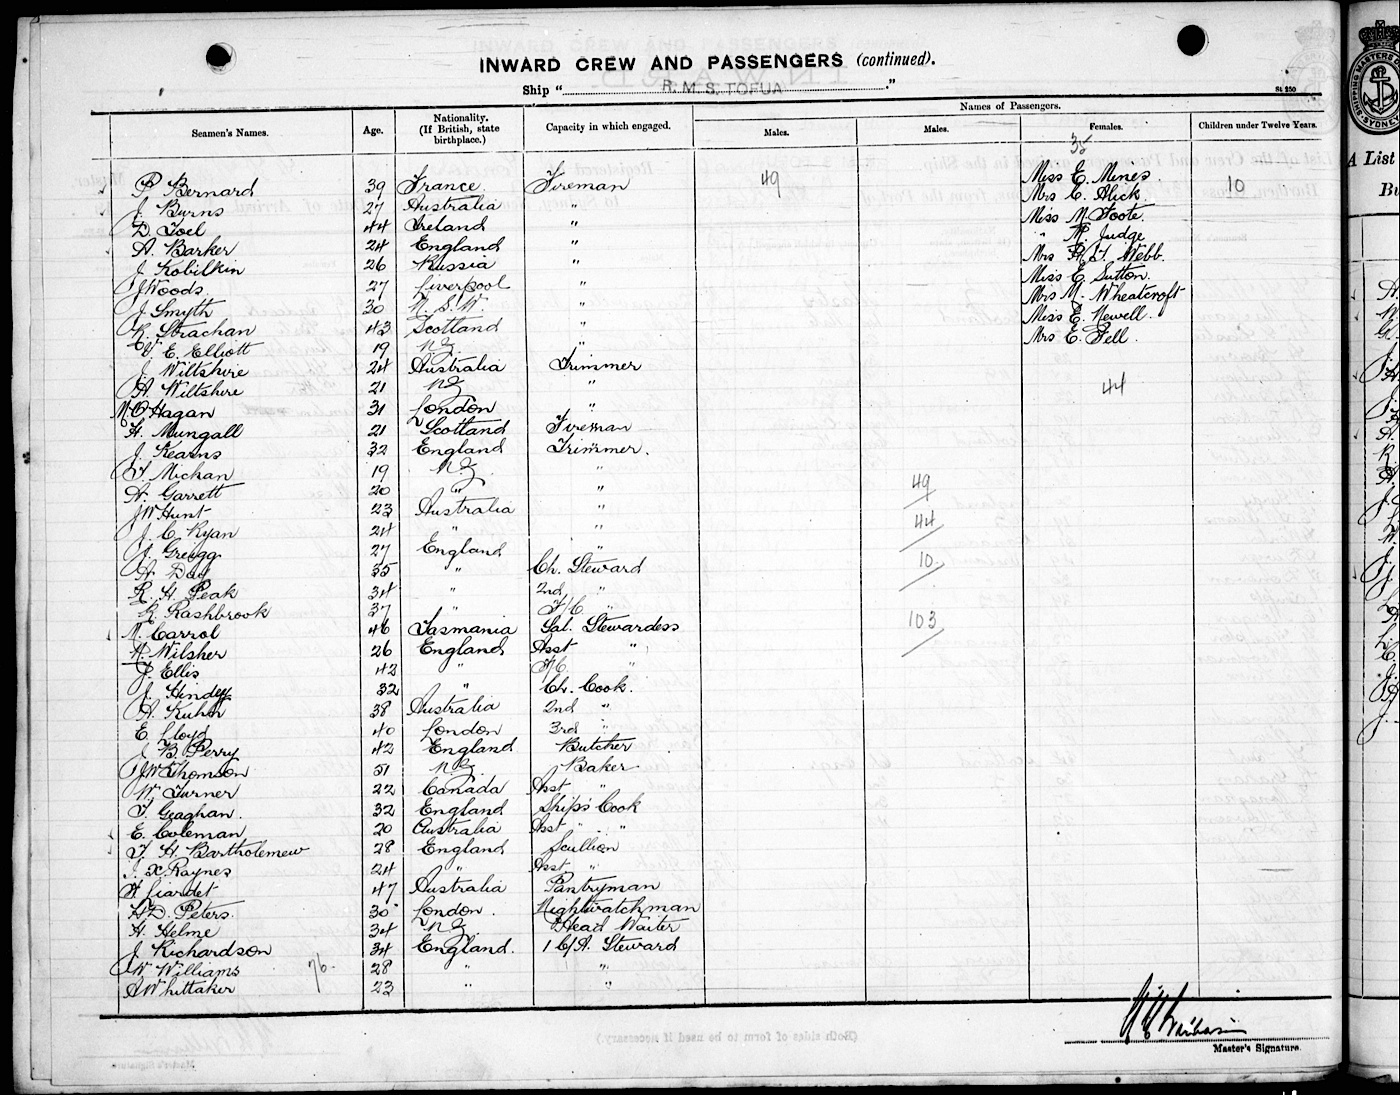 INWARD CREW AND PASSENGERS (continued).
Ship " R. M. S. TOFUA ."
St 250
Seamen's Names. Age. Nationality. (If British, state birthplace.) Capacity in which engaged. Names of Passengers.
Males. Males. Females. Children under Twelve Years.
35
49 10
P. Bernard 39 France. Fireman Miss E. Mines.
J. Burns 27 Australia " Mrs C. Alick.
D. Joel 44 Ireland " Miss M. Foote.
A. Barker 24 England " " M. Judge
J. Kobilkin 26 Russia " Mrs A. H. Webb.
J Woods 27 Liverpool " Miss E. Sutton.
J. Smyth 30 N. S. W. " Mrs M. Wheatcroft
R. Strachan 43 Scotland " Miss E. Newell.
V. E. Elliott 19 N. Z. " Mrs E. Fell.
J. Wiltshire 24 Australia Trimmer
A. Wiltshire 21 N Z " 44
M. O'Hagan 31 London "
H. Mungall 21 Scotland Fireman
J. Kearns 32 England Trimmer.
T. Michan 19 N. Z. "
A. Garrett 20 " " 49
J W Hunt 23 Australia "
J. C. Ryan 24 " " 44
J. Greigg 27 England "
A. Day 35 " Ch. Steward 10
R. H. Peak 34 " 2nd "
R. Rashbrook 37 " F/C "
M. Carrol 46 Tasmania Sal. Stewardess 103
A. Wilsher 26 England Asst "
P. Ellis 42 " "
J. Hindey 32 " Ch. Cook.
A. Kuhn 38 Australia 2nd "
E. Lloyd 40 London 3rd "
J. B. Perry 42 England Butcher
J W Thomson 51 N. Z. Baker
W. Turner 22 Canada Asst "
T. Geaghan. 32 England Ships Cook
E. Coleman 20 Australia Asst " "
T. H. Bartholomew 28 England Scullion
J. X. Raynes 24 " Asst "
F. Liardet 47 Australia Pantryman
H. D. Peters. 30 London. Nightwatchman
A. Helme 34 N. Z. Head Waiter
J. Richardson 34 England. 1 C/A. Steward
W Williams 76. 28 " "
A Whittaker 23 " "
Master's Signature.
A List
SYDNEY